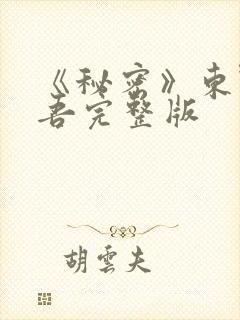 《秘密》東
吾完整版
胡雲夫